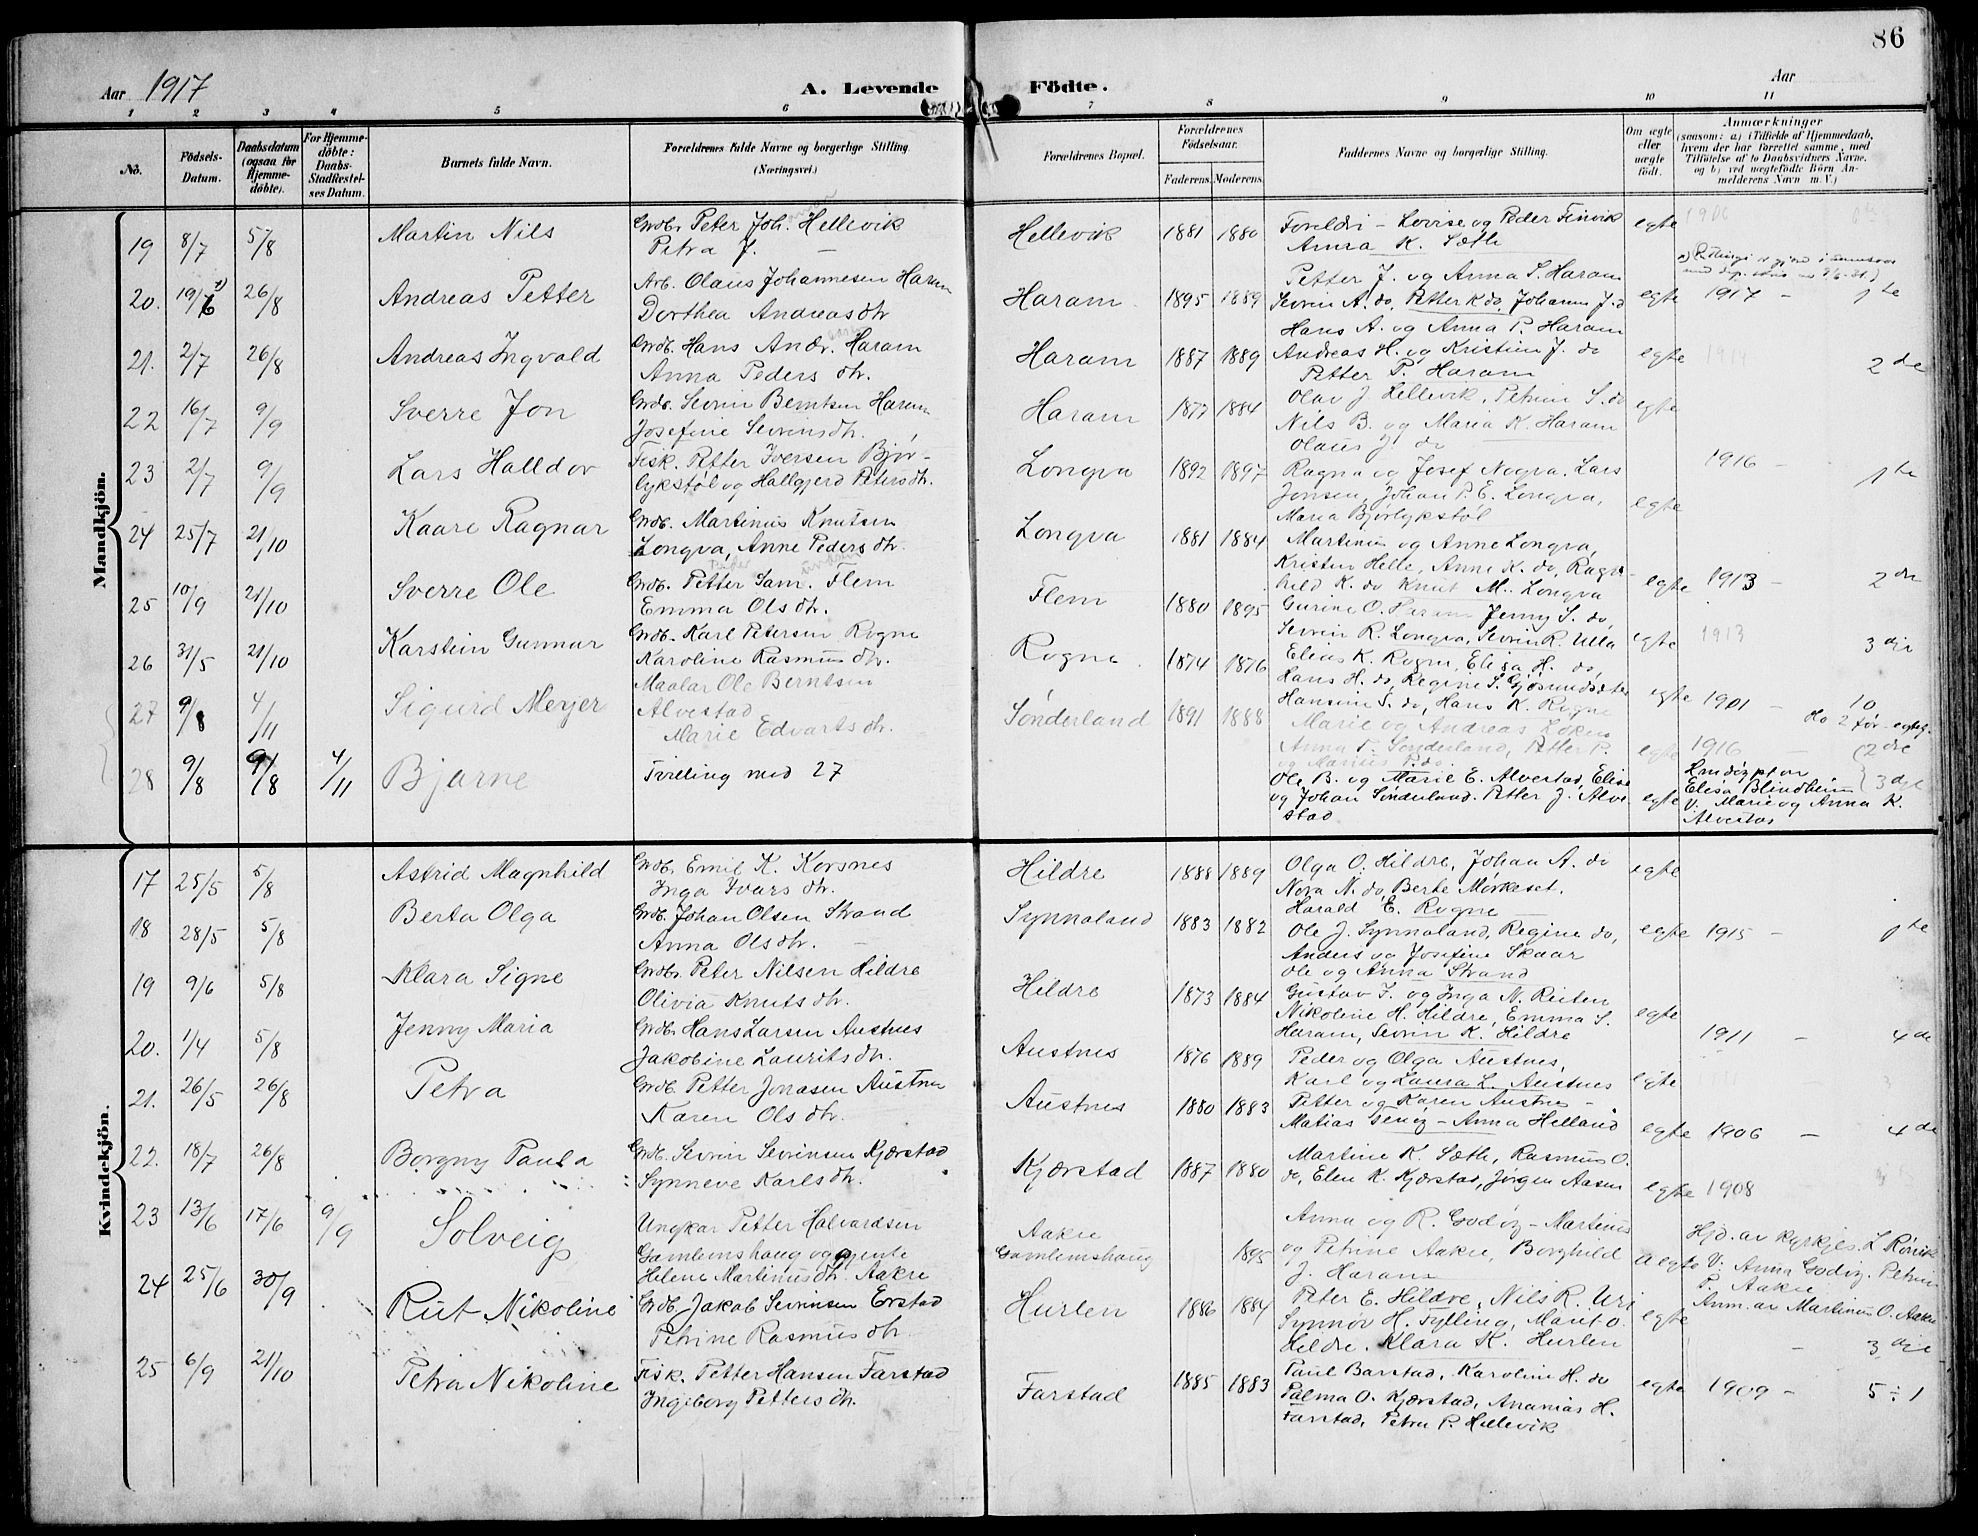 86
Aar 1917
A. Levende
Födte.
Aar
1 2 3 4 5 6 7 8 9 10 11
No.
Födsels-Datum.
Daabsdatum (ogsaa for Hjemme-döbte).
For Hjemme-döbte: Daabs-Stadfæstel-ses Datum.
Barnets fulde Navn.
Forældrenes fulde Navne og borgerlige Stilling (Næringsvei.)
Forældrenes Bopæl.
Forældrenes Födselsaar.
Faderens. Moderens.
Faddernes Navne og borgerlige Stilling.
Om ægte eller uægte födt.
Anmærkninger
(saasom: a) i Tilfælde af Hjemmedaab, hvem der har forrettet samme, med Tilföielse af to Daabsvidners Navne. og b) ved uægtefödte Börn An-melderens Navn m. V.)
Mandkjön.
19 8/7 5/8 Martin Nils
Grdb. Peter Joh. Hellevik
Petra J. —
Hellevik 1881 1880
Foreldri - Lovise og Peder Finvik
Anna K. Sæth
egte
20. 19/6 26/8 Andreas Petter
Arb. Olaus Johannesen Haram
Dorthea Andreasdtr
Haram 1895 1889
Petter J. og Anna S. Haram
Sevrin A. do, Petter K do, Johanna J. d
egte 1917 - 1te
21. 2/7 26/8 Andreas Ingvald
Grdb. Hans Andr. Haram
Anna Peders dtr.
Haram 1887 1889
Hans A. og Anna P. Haram
Andreas H. og Kristine J. do
Petter P. Haram
egte 2de
22 16/7 9/9 Sverre Jon
Grdb. Sevrin Berntsen Haram
Josefine Sevrinsdtr.
Haram 1877 1884
Olav J. Hellevik, Petrine S. do
Nils B. og Maria K. Haram
Olaus J. do
egte
23 2/7 9/9 Lars Halldor
Fisk. Petter Iversen Bjør-
lykstøl og Hallgjerd Petersdtr.
Longva 1892 1897
Ragna og Josef Nogva. Lars
Jonsen, Johan P. E. Longva,
Maria Bjørlykstøl
egte 1916 - 1te
24 25/7 21/10 Kaare Ragnar
Grdb. Martinus Knutsen
Longva, Anne Peders dtr.
Longva 1881 1884
Martinus og Anne Longva,
Kristen Helle, Anne K. do, Ragn-
hild K. do Knut M. Longva
egte 1913 - 2de
25 10/9 21/10 Sverre Ole
Grdb. Petter Sam. Flem
Emma Ols dtr.
Flem 1880 1895
Gurine O. Haram Jenny S. do,
Sevrin R. Longva, Sevrin R. Ulla
egte 1913 3dje
26 31/5 21/10 Karstein Gunnar
Grdb. Karl Petersen Rogne
Karoline Rasmus dtr.
Rogne 1874 1876
Elias K. Rogne, Elisa H. do,
Hans H. do, Regine S. Gjøsundsæter
Hansine S. do, Hans K. Rogne
egte 1901 - 10
27 9/8 4/11 Sigurd Meyer
Maalar Ole Berntsen
Alvestad
Marie Edvarts dtr.
Sønderland 1891 1888
Marie og Andreas Løken
Anna P. Sønderland, Petter P.
og Marius P. do.
egte 1916 2dre
28 9/8 9/8 4/11 Bjarne
Tvilling med 27
Ole B. og Marie E. Alvestad, Elise
og Johan Sønderland. Petter J. Alve-
stad
egte
Elisa Blindheim
V. Marie og Anna K.
Alvestad
3dje
Kvindekjön.
17 25/5 5/8 Astrid Magnhild
Grdb. Emil K. Korsnes
Inga Ivars dtr.
Hildre 1888 1889
Olga O. Hildre, Johan A. do
Nora N. do, Berte Mørkeset.
Harald E. Rogne
egte
18 28/5 5/8 Berta Olga
Grdb. Johan Olsen Strand
Anna Ols dtr. —
Synnaland 1883 1882
Ole J. Synnaland, Regine do,
Anders og Josefine Skaar
Ole og Anna Strand
egte 1915 - 1te
19 9/6 5/8 Klara Signe
Grdbr. Peter Nilsen Hildre
Olivia Knuts dtr.
Hildre 1873 1884
Gustav I. og Inga N. Reiten
Nikoline H. Hildre, Emma S.
Haram, Sevrin K. Hildre
egte
20. 1/4 5/8 Jenny Maria
Grdb. Hans Larsen Austnes
Jakobine Laurits dtr.
Austnes 1876 1889
Peder og Olga Austnes,
Karl og Laura L. Austnes
egte 1911 - 4de
21. 26/5 26/8 Petra
Grdb. Petter Jonasen Austnes
Karen Ols dtr.
Austnes 1880 1883
Petter og Karen Austnes -
Matias - Anna Helland
egte 1906 - 4de
22. 18/7 26/8 Borgny Paula
Grdb. Sevrin Sevrinsen Kjærstad
Synneve Karlsdtr.
Kjærstad 1887 1880
Martine K. Sæth, Rasmus O.
do, Elen K. Kjærstad, Jørgen Aasen
egte 1908
23 13/6 17/6 9/9 Solveig
Ungkar Petter Halvardsen
Gamlemshaug og gjente
Helene Martinusdtr. Aakre
Aakre
Gamlemshaug 1895
Anna og R. Godøy - Martinus
og Petrine Aakre, Borghild
J. Haram
uegte
Hjd. av kyrkjes. L Rønvik
V. Anna Godøy. Petrine
P. Aakre
Anm. av Martinus O. Aakre
24 25/6 30/9 Rut Nikoline
Grdb. Jakob Sevrinsen Erstad
Petrine Rasmus dtr
Hurlen 1886 1884
Peter E. Hildre, Nils R. Uri
Synnøv H. Fylling, Marit O.
Hildre. Klara K. Hurlen
egte - 3dje
25 6/9 21/10 Petra Nikoline
Fisk. Petter Hansen Farstad
Ingeborg Petters dtr.
Farstad 1885 1883
Paul Barstad, Karoline H. do
Palma O. Kjærstad, Ananias H.
Farstad, Petra P. Hellevik
egte 1909 - 5 ÷ 1